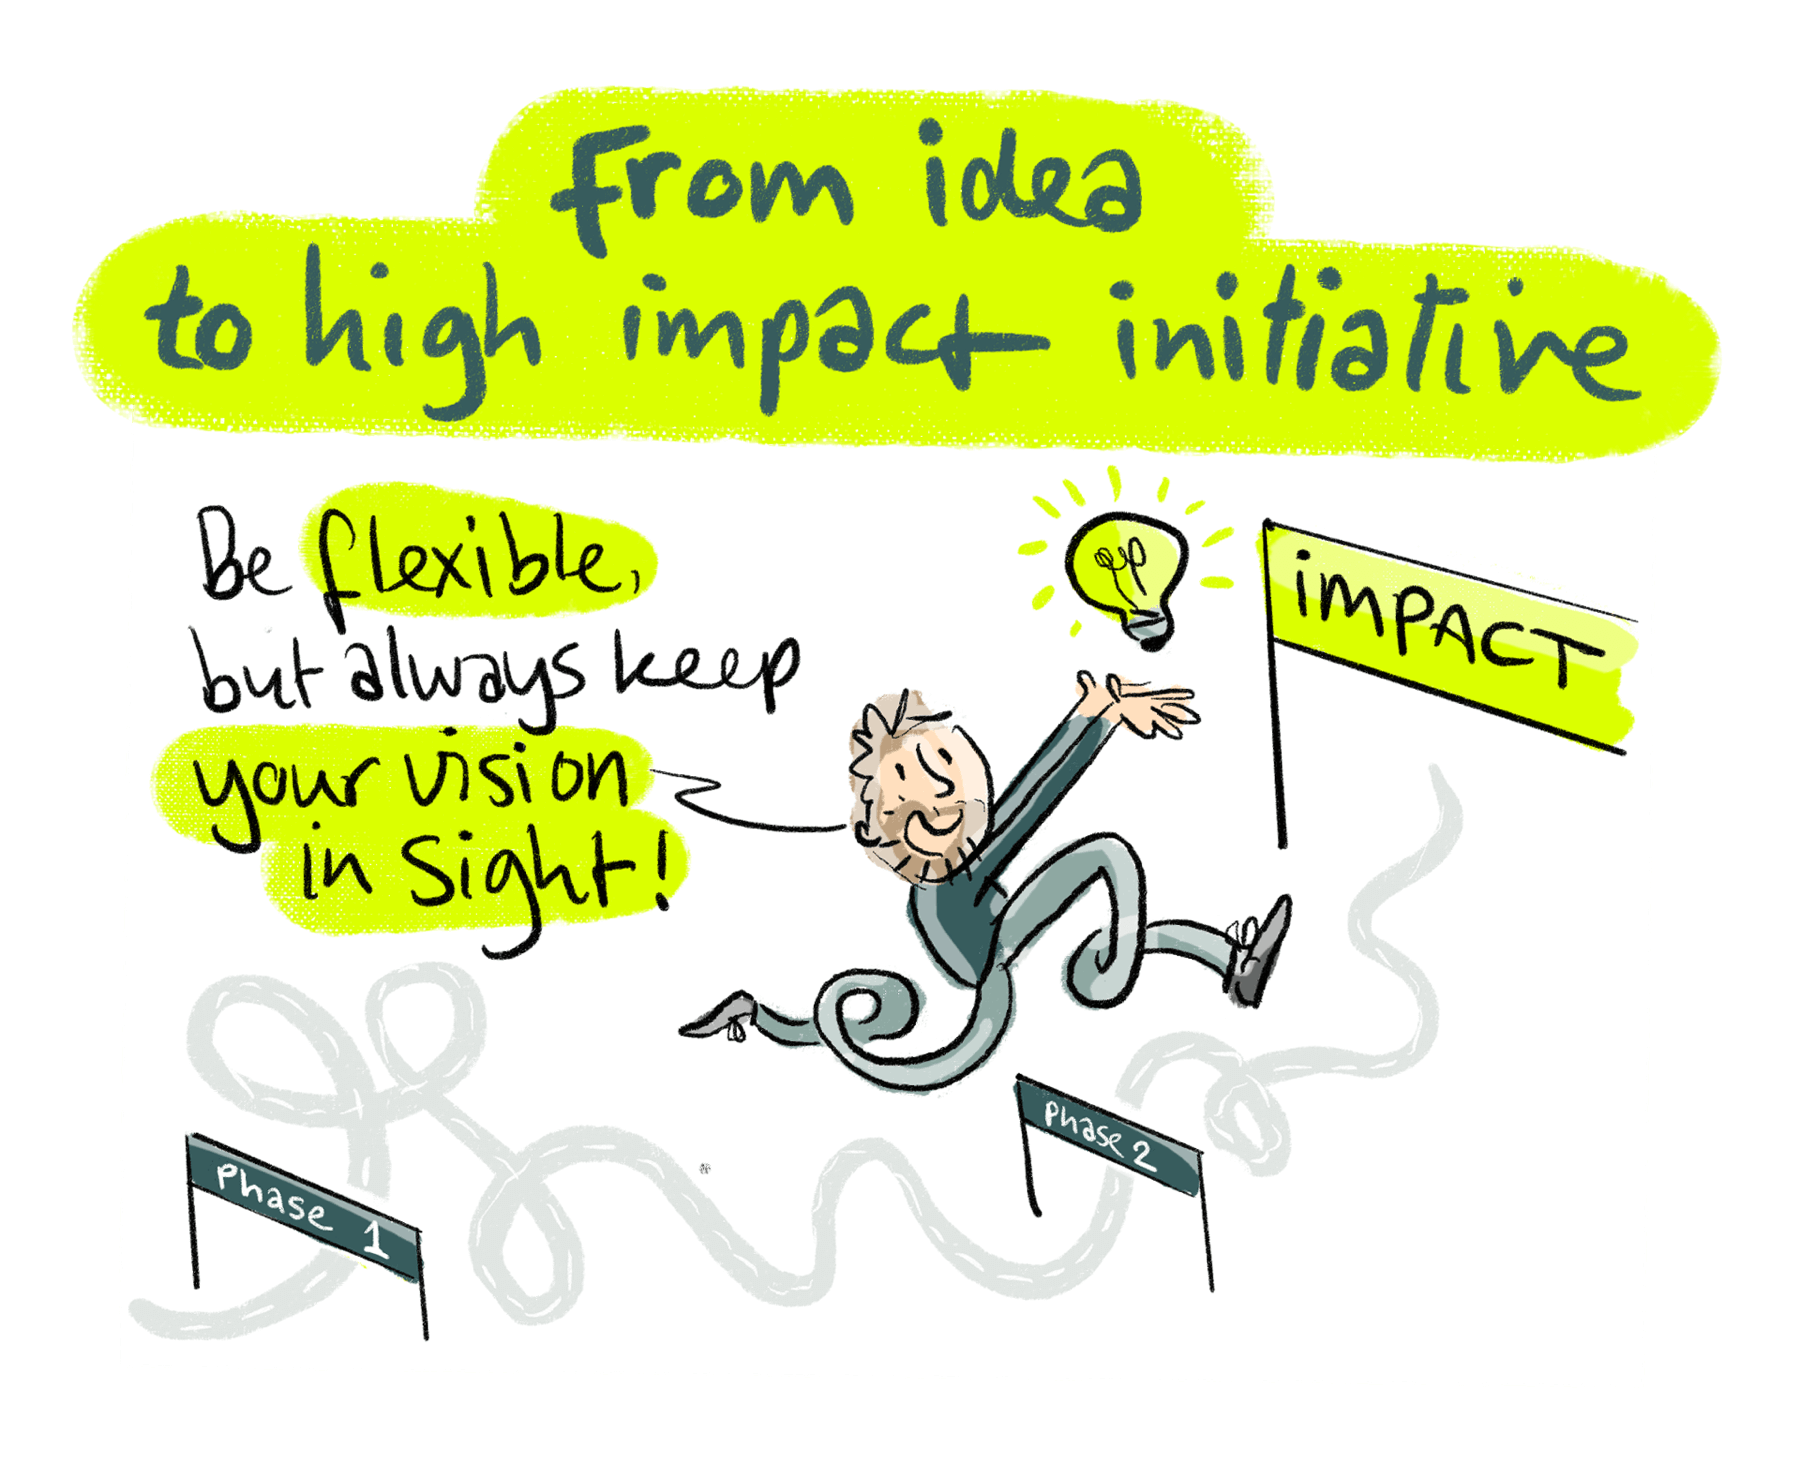 from idea
to high impact initiative
Be flexible,
but always keep
your vision
in sight!
iMPACT
Phase 1
Phase 2